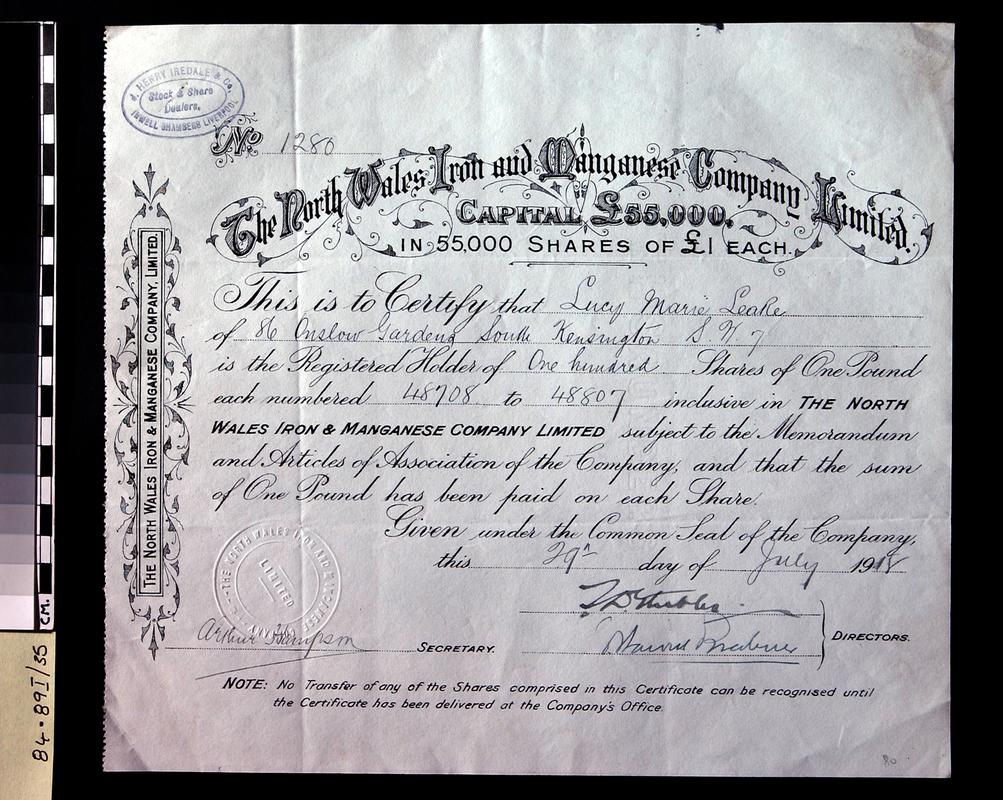 J. HENRY IREDALE & CO.
Stock & Share
Dealers,
IRWELL CHAMBERS LIVERPOOL
No 1280
The North Wales Iron and Manganese Company Limited.
CAPITAL £55,000.
IN 55,000 SHARES OF £1 EACH.
THE NORTH WALES IRON & MANGANESE COMPANY, LIMITED.
This is to Certify that Lucy Marie Leake
of 86 Onslow Gardens South Kensington S W 7
is the Registered Holder of One hundred Shares of One Pound
each numbered 48708 to 48807 inclusive in THE NORTH
WALES IRON & MANGANESE COMPANY LIMITED subject to the Memorandum
and Articles of Association of the Company, and that the sum
of One Pound has been paid on each Share.
Given under the Common Seal of the Company,
this 29th day of July 1918
THE NORTH WALES IRON AND MANGANESE COMPANY
LIMITED
Arthur Sampson SECRETARY.
DIRECTORS.
NOTE: No Transfer of any of the Shares comprised in this Certificate can be recognised until
the Certificate has been delivered at the Company's Office.
80
CM.
84.89I/35